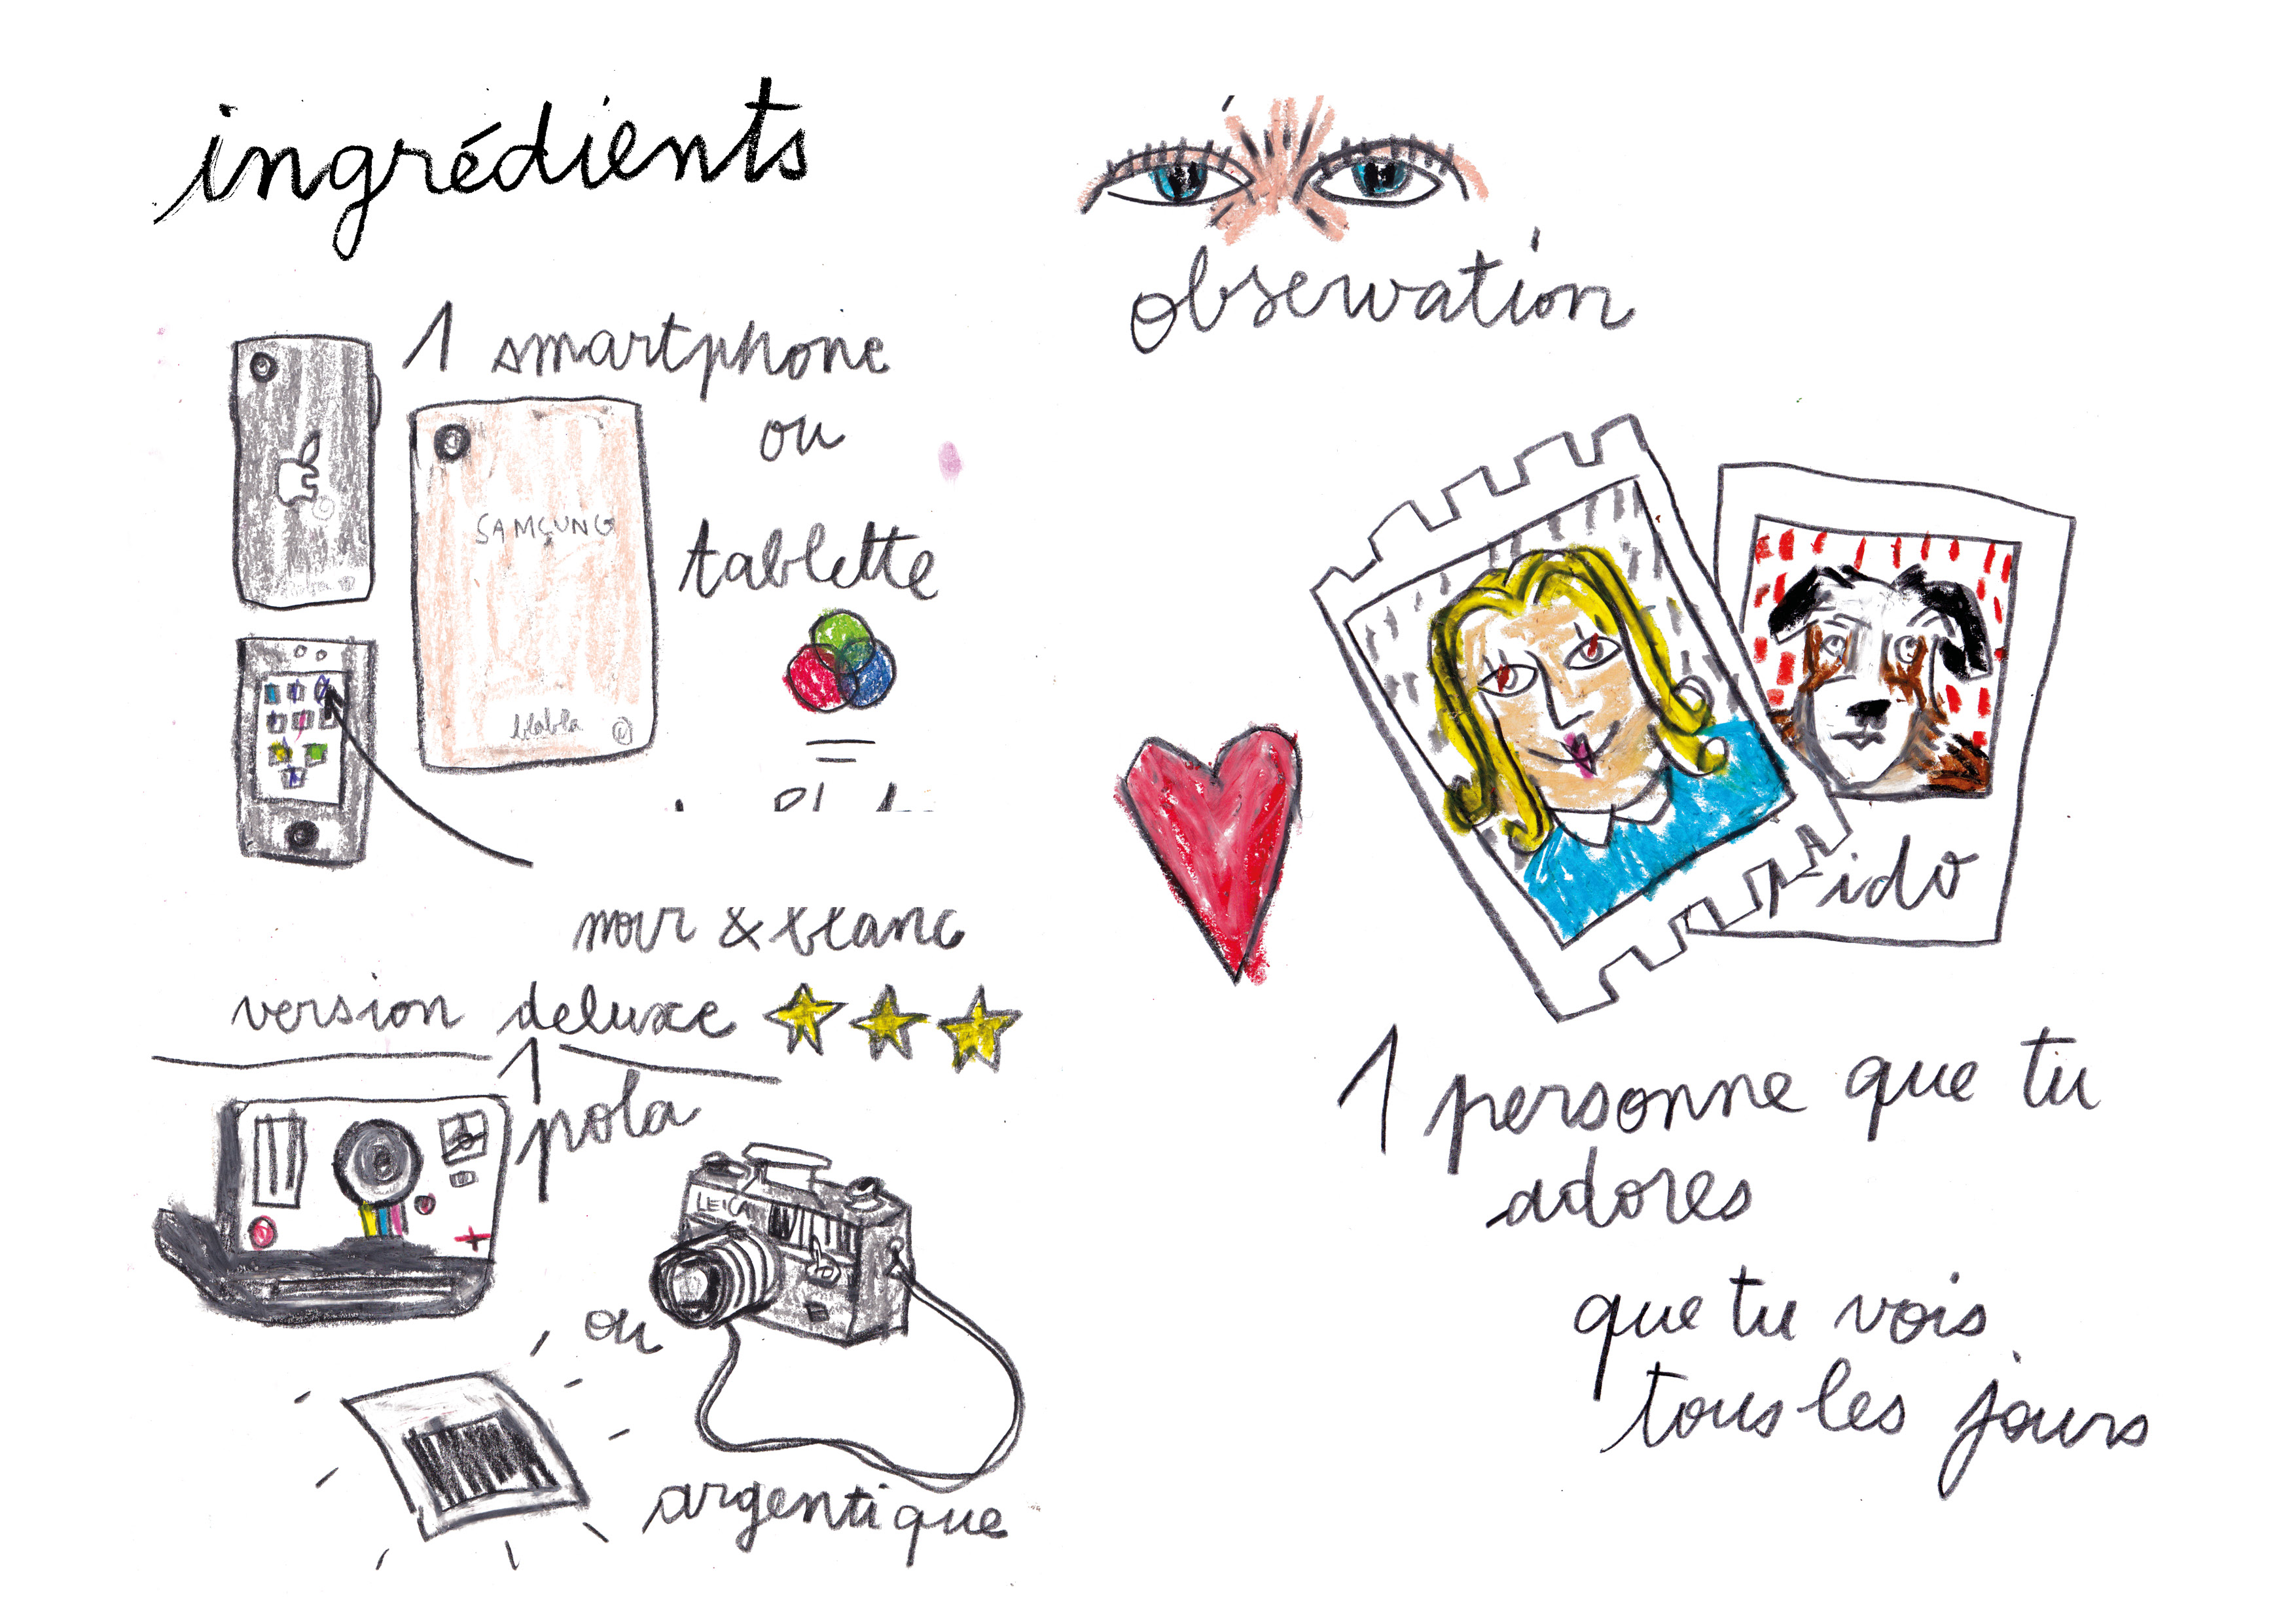 ingrédients
1 smartphone
ou
tablette
SAMSUNG
blabla
noir & blanc
version deluxe
1
pola
LEICA
ou
argentique
observation
ido
1 personne que tu
adores
que tu vois
tous les jours